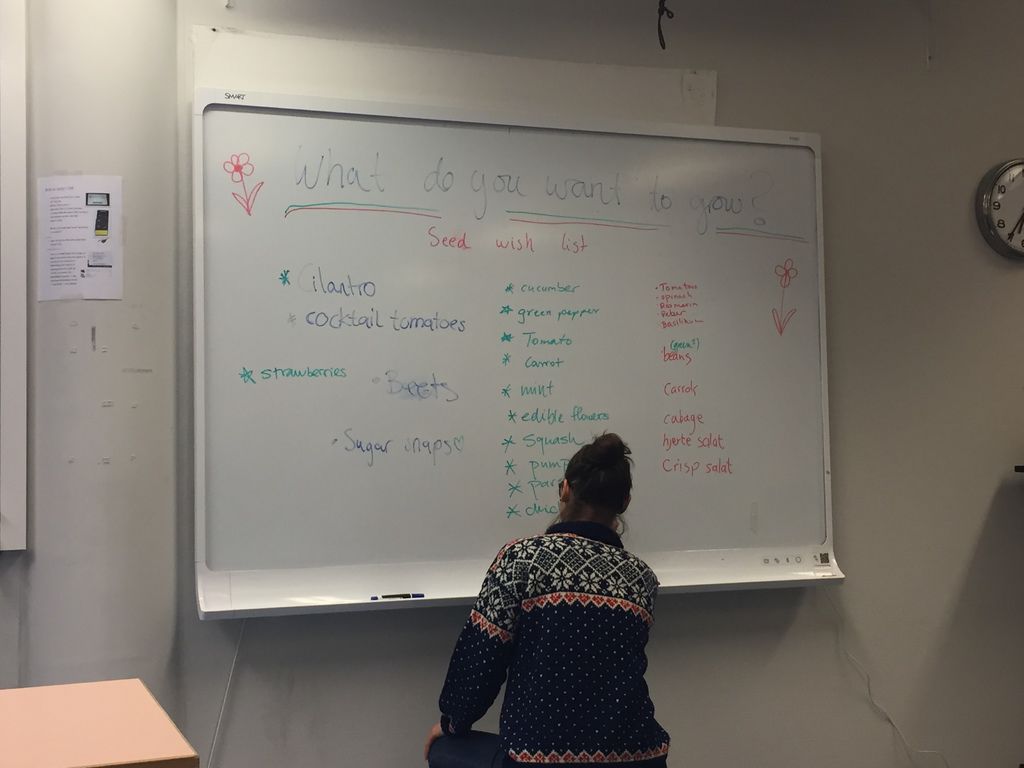 SMART
What do you want to grow?
Seed wish list
Cilantro
cocktail tomatoes
strawberries
Beets
Sugar snaps
cucumber
green pepper
Tomato
carrot
mint
edible flowers
Squash
pump
par
chic
Tomatoes
spinach
Rosmarin
Basilikum
(green?)
beans
Carrot
cabage
hjerte salat
Crisp salat